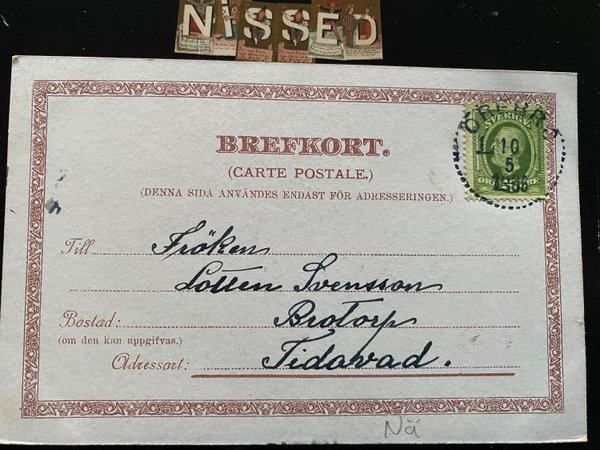 NiSSED
BREFKORT.
(CARTE POSTALE.)
(DENNA SIDA ANVÄNDES ENDAST FÖR ADRESSERINGEN.)
ÖREBRO
SVERIGE
10
5
Till Fröken
Lotten Svensson
Bostad: Brotorp
(om den kan uppgifvas.)
Adressort: Tidavad.
Nä